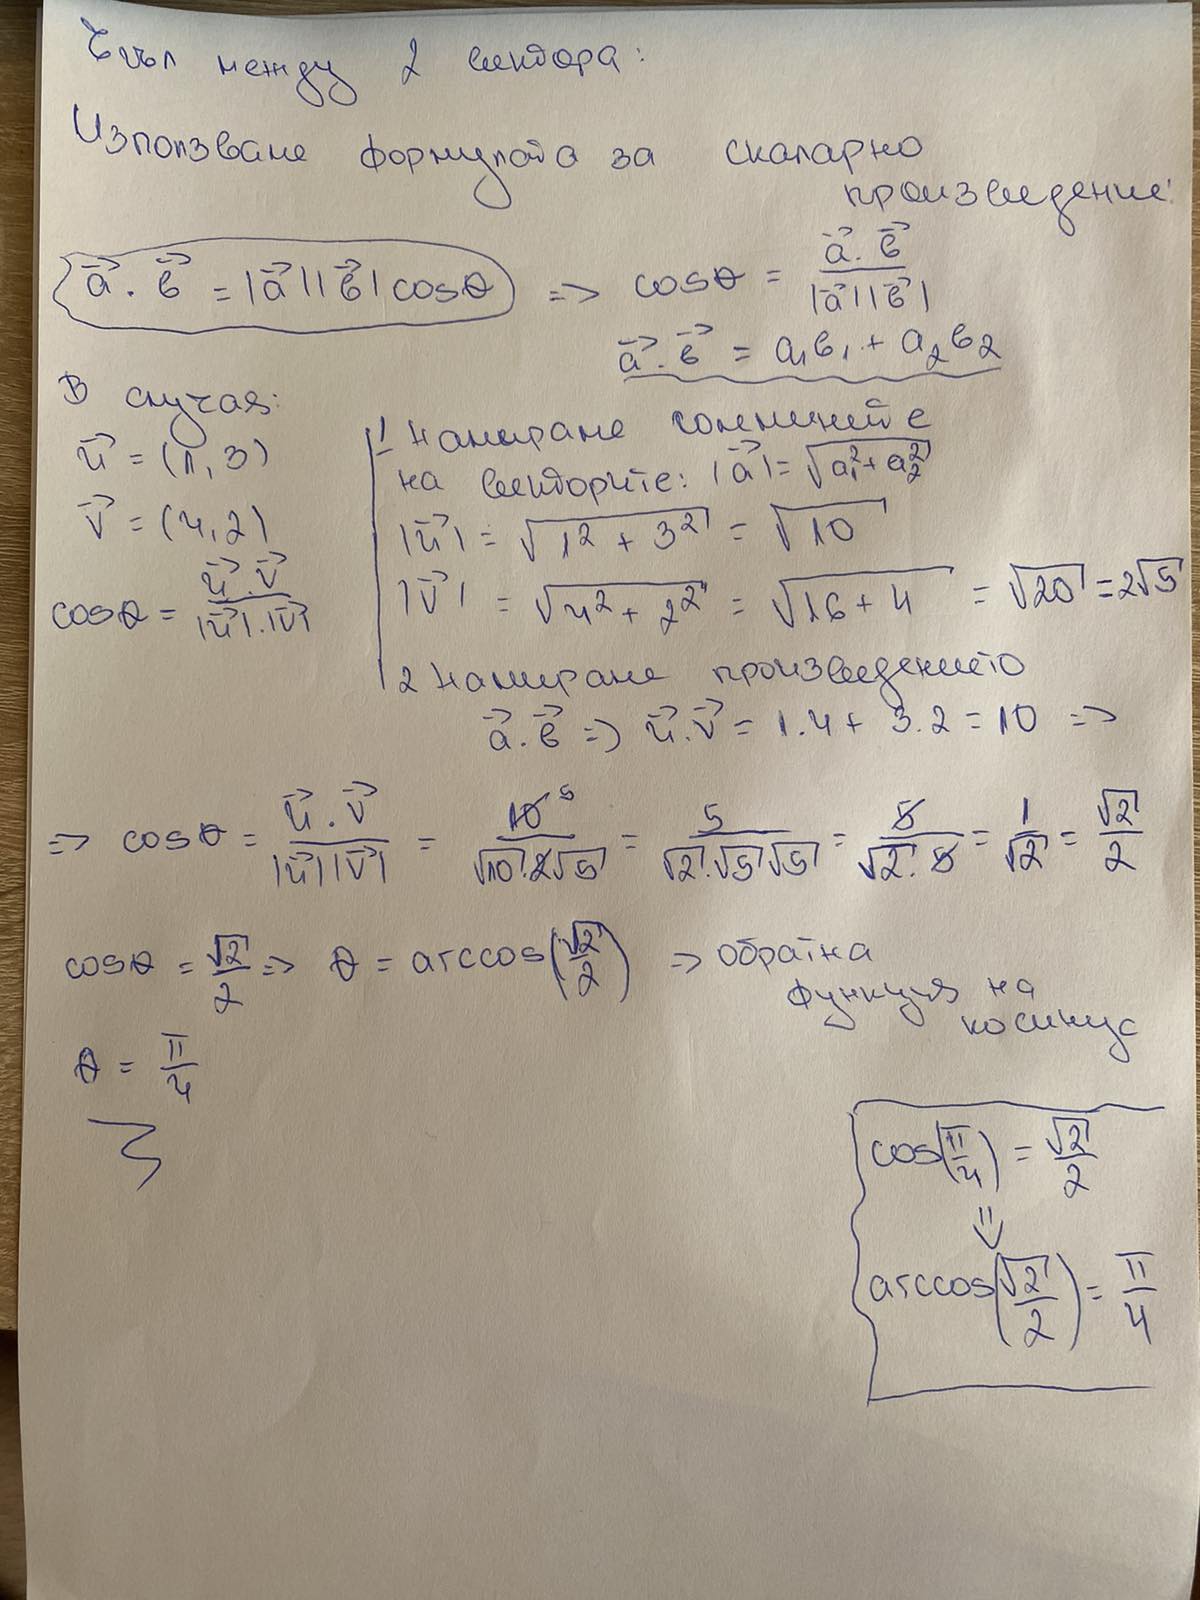 Ъгъл между 2 вектора:
Използване формулата за скаларно
произведение:
a⃗ . в⃗ = |a⃗||в⃗| cosθ => cosθ = a⃗ . в⃗ / |a⃗||в⃗|
a⃗ . в⃗ = a₁в₁ + a₂в₂
В случая:
u⃗ = (1, 3)
v⃗ = (4, 2)
cosθ = u⃗ . v⃗ / |u⃗| . |v⃗|
1 Намиране
на векторите: |a⃗| = √(a₁² + a₂²)
|u⃗| = √(1² + 3²) = √10
|v⃗| = √(4² + 2²) = √(16 + 4) = √20 = 2√5
2 Намиране произведението
a⃗ . в⃗ => u⃗ . v⃗ = 1.4 + 3.2 = 10 =>
=> cosθ = u⃗ . v⃗ / |u⃗||v⃗| = 10 5 / √10 . 2√5 = 5 / √2 . √5 √5 = 5 / √2 . 5 = 1/√2 = √2/2
cosθ = √2/2 => θ = arccos(√2/2) => обратна
функция на
косинус
θ = π/4
cos(π/4) = √2/2
⇓
arccos(√2/2) = π/4